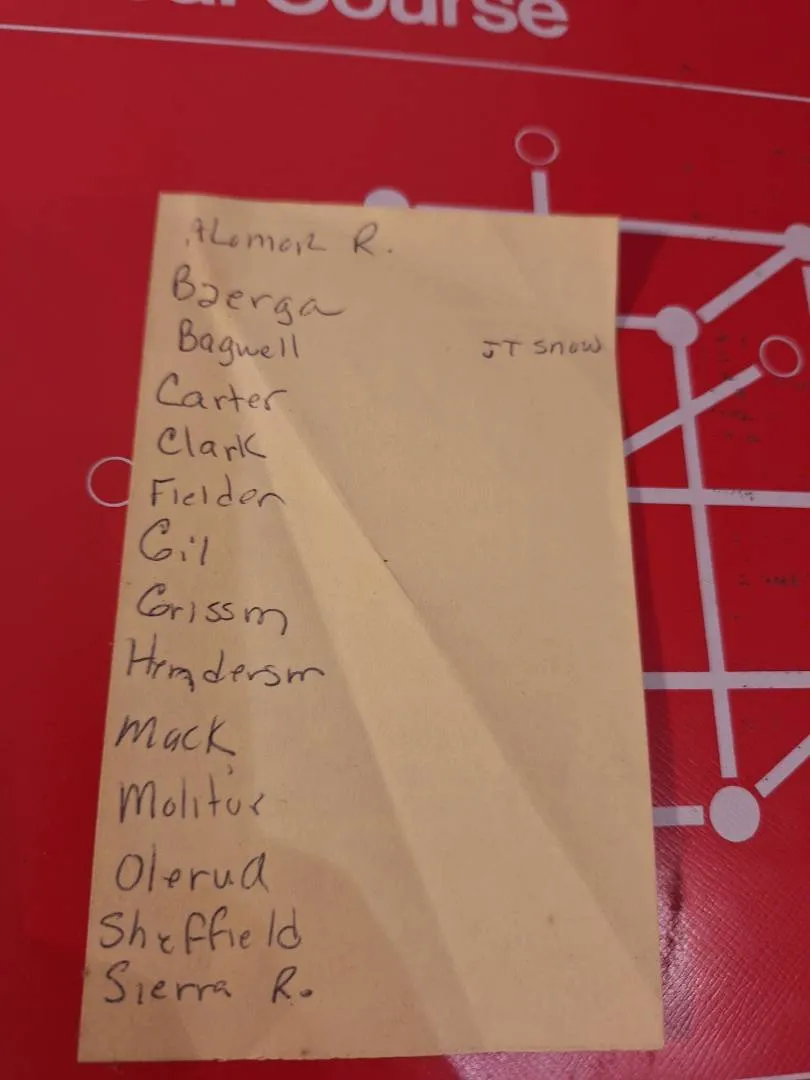 Course
Alomar R.
Baerga
Bagwell
JT Snow
Carter
Clark
Fielder
Gil
Grissom
Henderson
Mack
Molitor
Olerud
Sheffield
Sierra R.